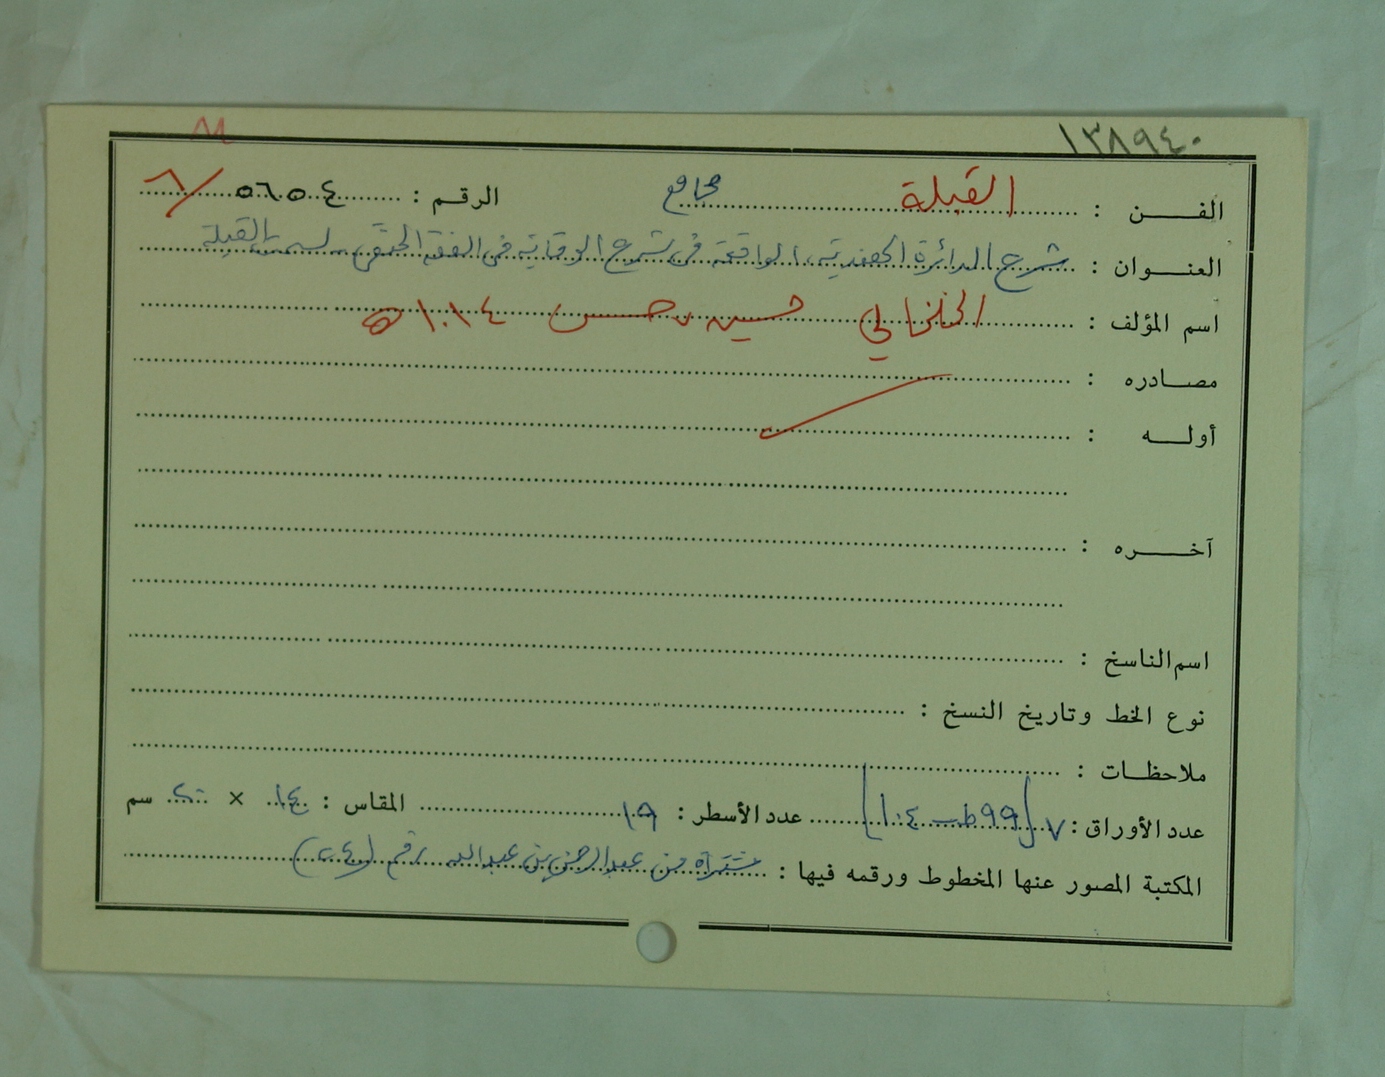 ١٣٨٩٤٠
الفن : القبلة مجاميع الرقم : ٥٦٥٤ / ٦
العنوان : شرح الدائرة الهندية الواقعة في شرح الوقاية في الفقه الحنفي لسمت القبلة
اسم المؤلف : الخلخالي حسين حسن ١٠١٤ ه
مصادره :
أوله :
آخره :
اسم الناسخ :
نوع الخط وتاريخ النسخ :
ملاحظات :
عدد الأوراق : ٧ [٩٩ ب - ١٠٤] عدد الأسطر : ١٩ المقاس : ١٤ × ٢٠ سم
المكتبة المصور عنها المخطوط ورقمه فيها : مشتراة من عبدالرحمن بن عبدالله رقم (٢٤)